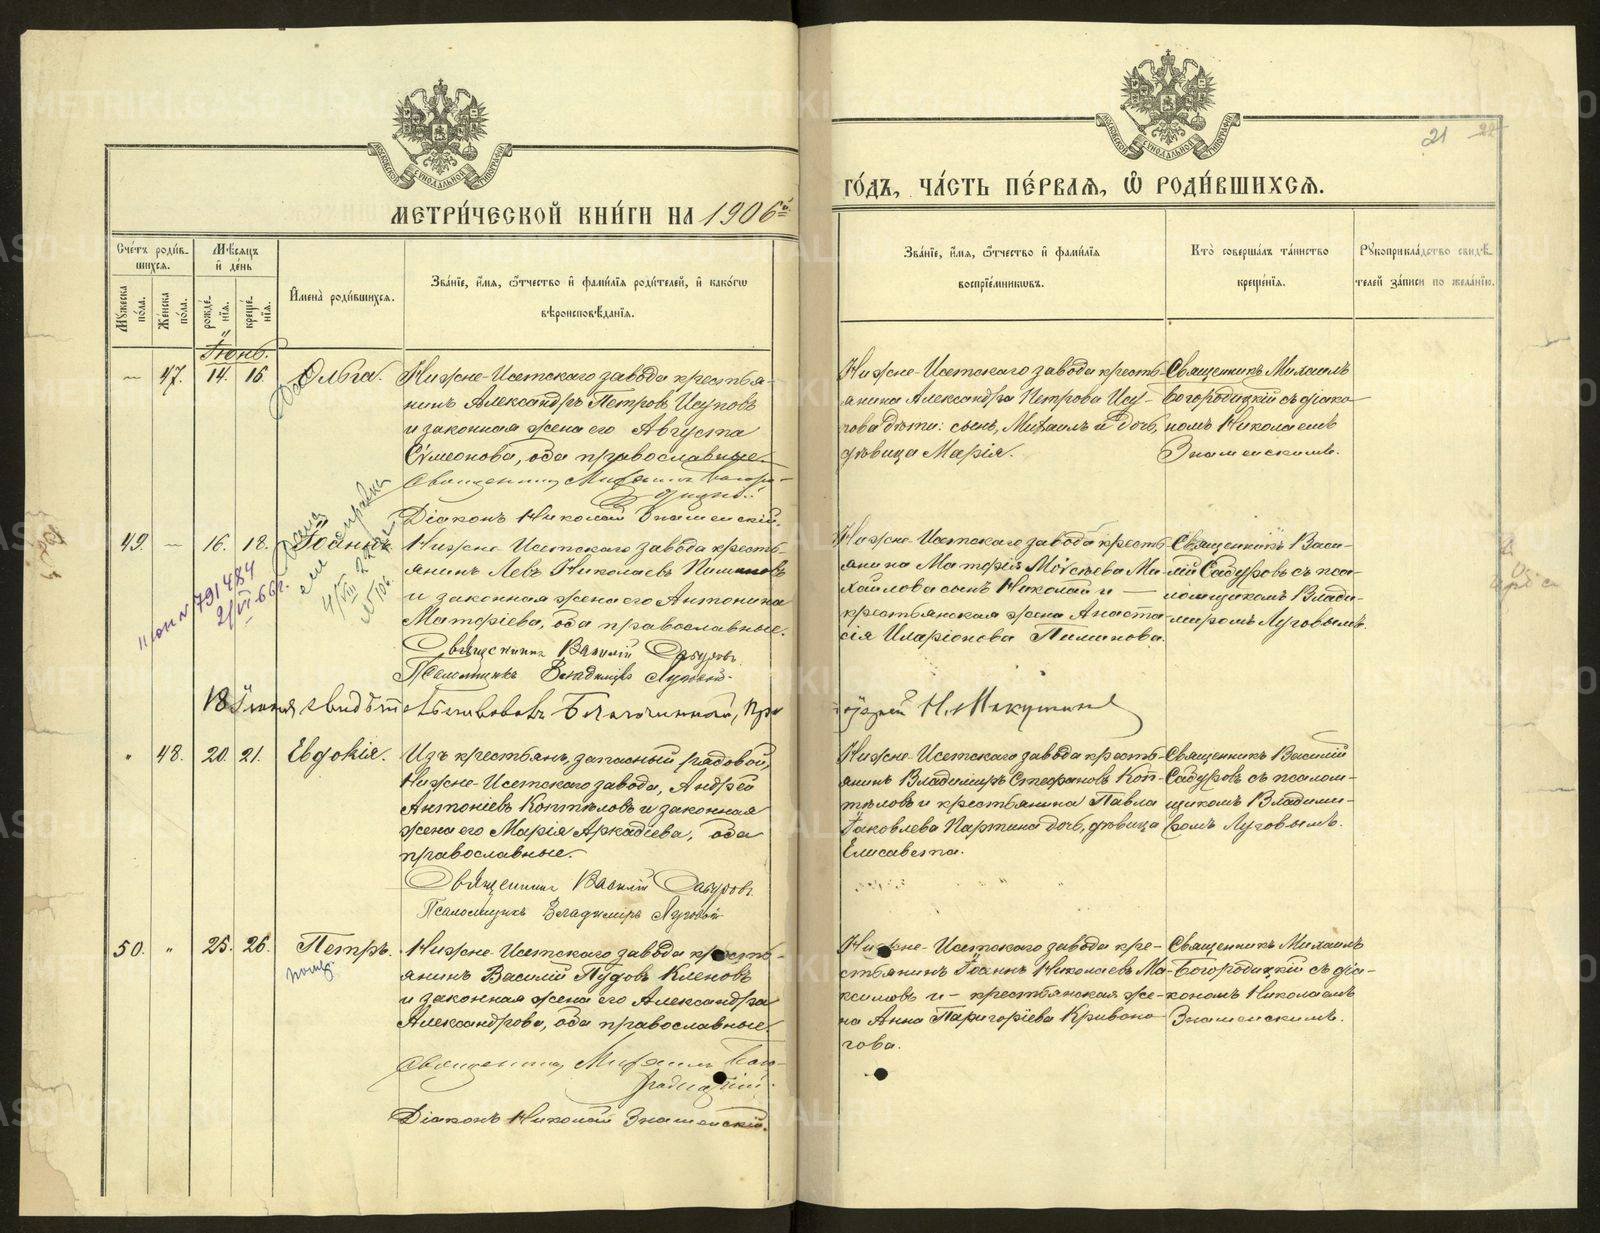 МЕТРИ́ЧЕСКОЙ КНИ́ГИ НА 1906й
ГО́ДЪ, ЧА́СТЬ ПЕ́РВАЯ, Ѡ҆ РОДИ́ВШИХСЯ.
21
Сче́тъ роди́в-
шихся.
Мѣ́сяцъ
и҆ де́нь
Мꙋ́жеска по́ла.
Же́нска по́ла.
рожде́нїя.
креще́нїя.
И҆мена̀ роди́вшихся.
Зва́нїе, и҆́мя, ѻ҆́тчество и҆ фами́лїя роди́телей, и҆ како́гѡ
вѣроисповѣ́данїя.
Зва́нїе, и҆́мя, ѻ҆́тчество и҆ фами́лїя
воспрїе́мникѡвъ.
Кто̀ соверша́лъ та́инство
креще́нїя.
Рꙋкоприкла́дство свидѣ́-
телей за́писи по жела́нїю.
Іюнь.
— 47. 14. 16. Ольга.
Нижне-Исетскаго завода крестья-
нинъ Александръ Петровъ Исуповъ
и законная жена его Августа
Сѵмеонова, оба православные.
Священникъ Михаилъ Бого-
родицкій
Діаконъ Николай Знаменскій.
Нижне-Исетскаго завода кресть-
янина Александра ПетроваИсу-
пова дѣти: сынъ, Михаилъ и дочь,
дѣвица Марія.
Священникъ Михаилъ
Богородицкій съ діако-
номъ Николаемъ
Знаменскимъ.
49. — 16. 18. Іоаннъ
Нижне-Исетскаго завода кресть-
янинъ Левъ Николаевъ Пимановъ
и законная жена его Антонина
Матѳіева, оба православные.
Священникъ Василій Сабуровъ
Псаломщикъ Владиміръ Луговой.
Нижне-Исетскаго завода кресть-
янина Матѳія Моѵсеева Ми-
хайлова сынъ Николай и —
крестьянская жена Анаста-
сія Иларіонова Пиманова.
Священникъ Васи-
лій Сабуровъ съ пса-
ломщикомъ Влади-
миромъ Луговымъ.
791484
2/VI-66г.
18 Іюня свидѣтельствовалъ Благочинный, Про
тоіерей Н. Мокушинъ
" 48. 20. 21. Евдокія.
Изъ крестьянъ, запасный рядовой,
Нижне-Исетскаго завода, Андрей
Антоніевъ Коптѣловъ и законная
жена его Марія Аркадіева, оба
православные.
Священникъ Василій Сабуровъ.
Псаломщикъ Владиміръ Луговой
Нижне-Исетскаго завода кресть-
янинъ Владиміръ Стефановъ Коп-
тѣловъ и крестьянина Павла
Іаковлева Партина дочь, дѣвица
Елисавета.
Священникъ Василій
Сабуровъ съ псалом-
щикомъ Владими-
ромъ Луговымъ.
50. " 25. 26. Петръ.
Нижне-Исетскаго завода кресть-
янинъ Василій Пудовъ Кленовъ
и законная жена его Александра
Александрова, оба православные.
Священникъ Михаилъ Бого-
родицкій.
Діаконъ Николай Знаменскій.
Нижне-Исетскаго завода кре-
стьянинъ Іоаннъ Николаевъ Ма-
ксимовъ и — крестьянская же-
на Анна Григоріева Кривоно-
гова.
Священникъ Михаилъ
Богородицкій съ діа-
кономъ Николаемъ
Знаменскимъ.